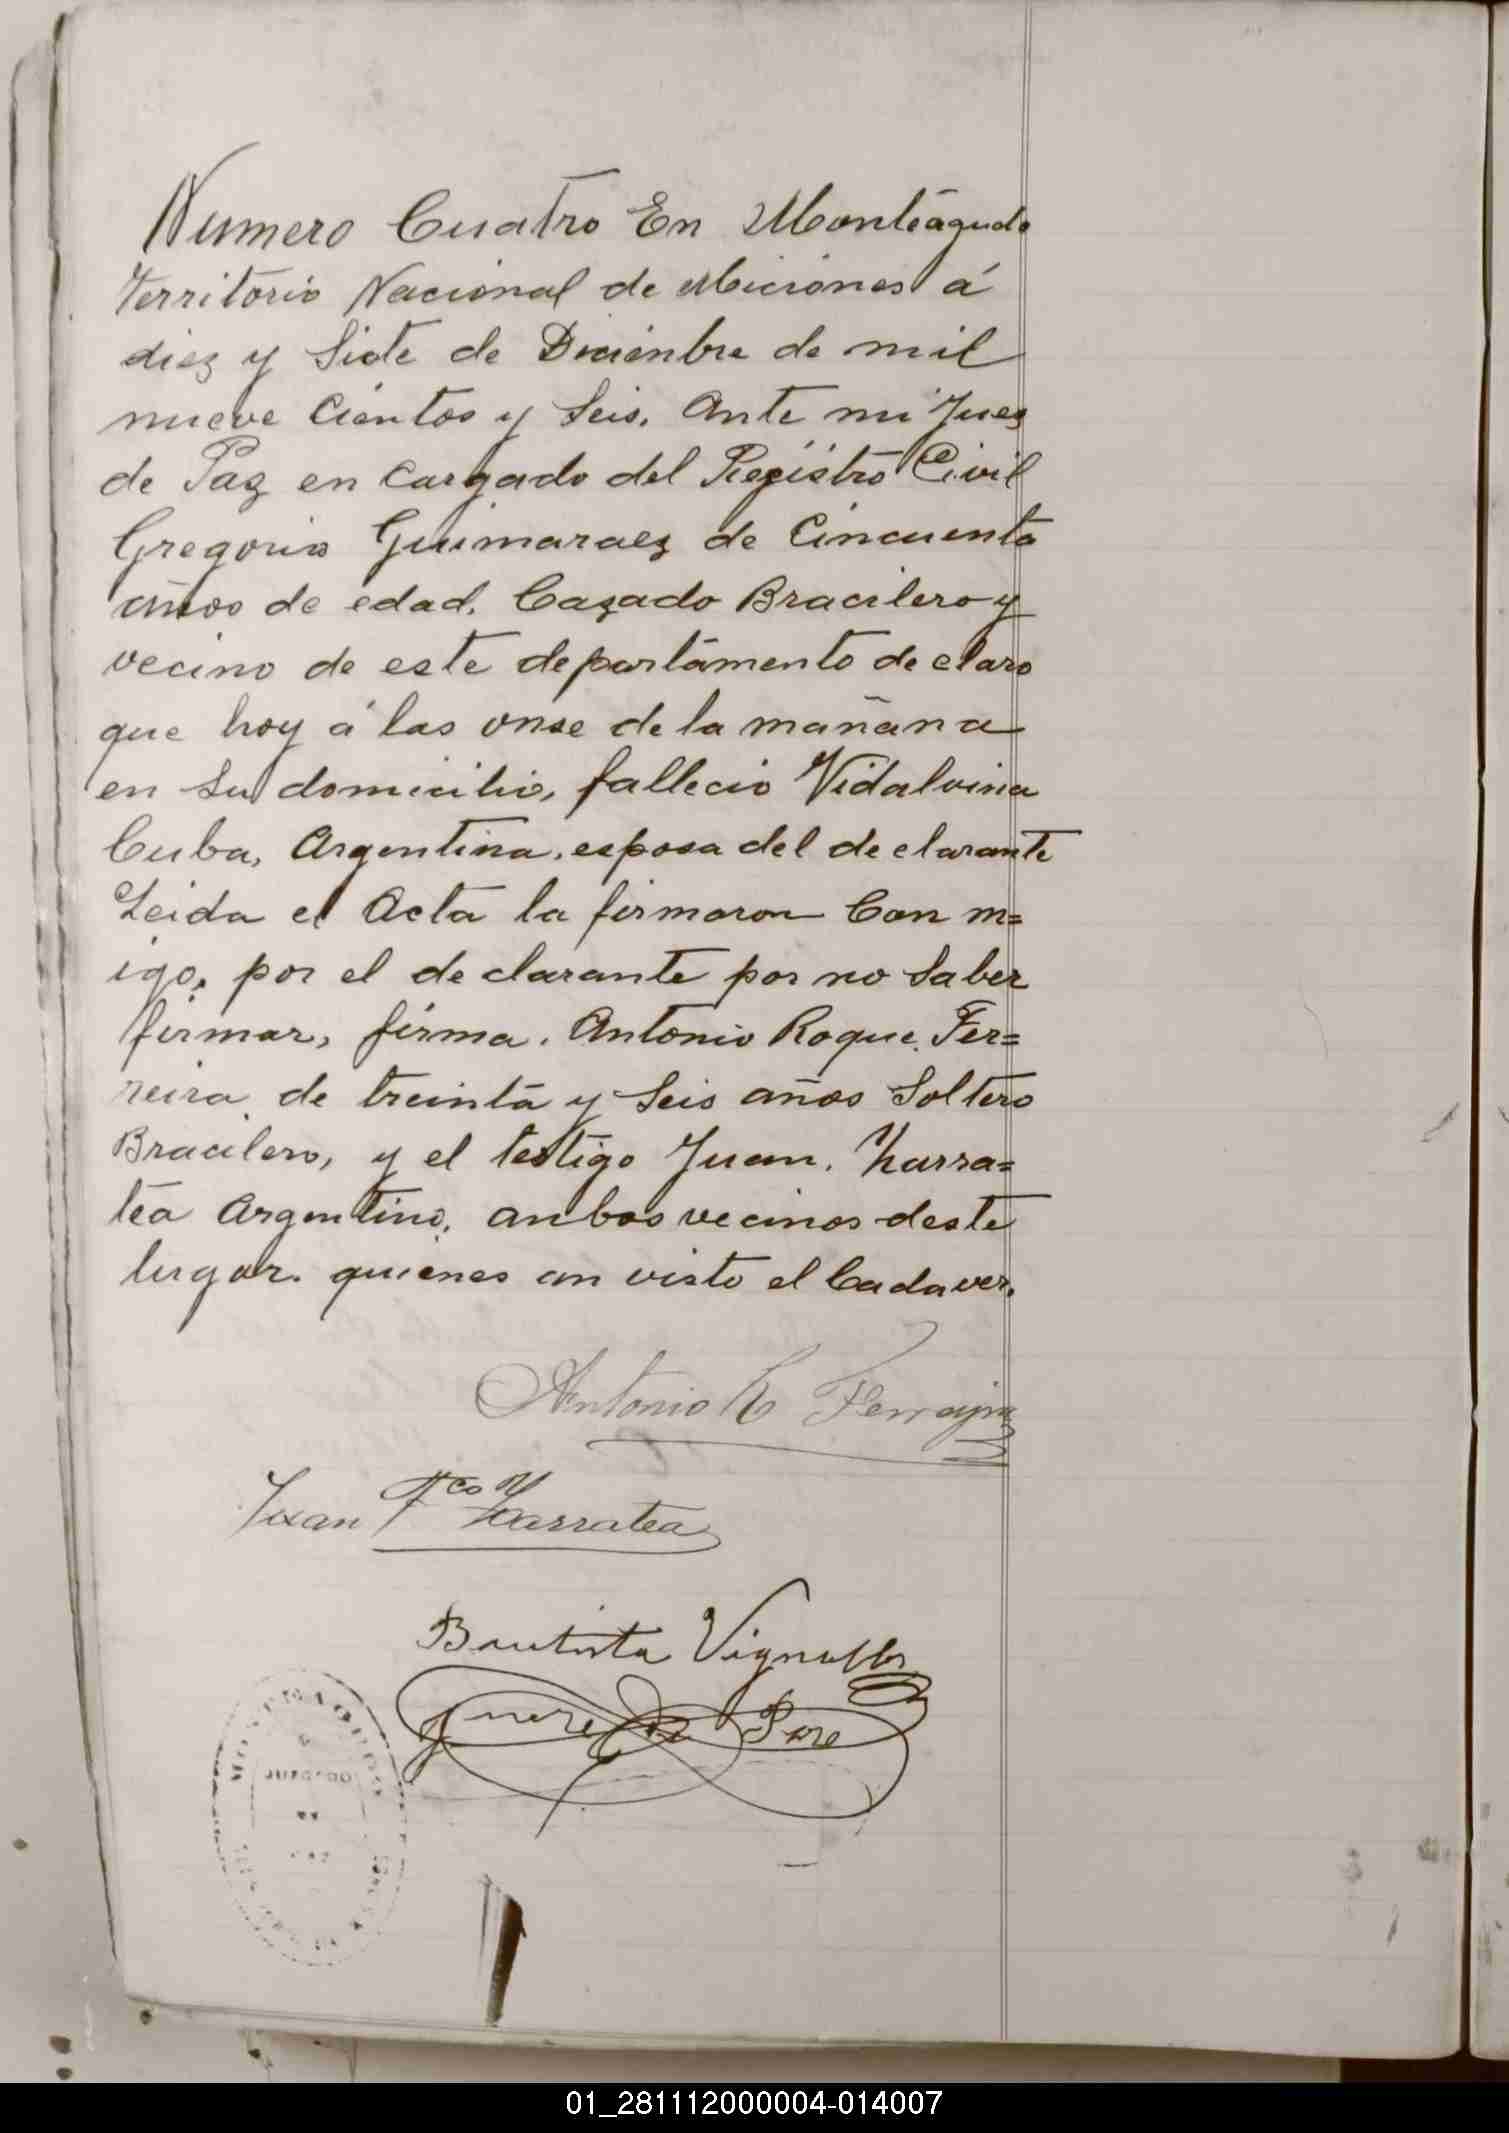 Numero Cuatro En Monteagudo
Territorio Nacional de Miciones á
diez y Siete de Diciembre de mil
nueve Cientos y Seis. Ante mi Juez
de Paz en cargado del Registro Civil
Gregorio Guimaraez de Cincuenta
años de edad. Cazado Bracilero y
vecino de este departamento de claro
que hoy á las onse de la mañana
en Su domicilio, fallecio Vidalvina
Cuba, Argentina, esposa del de clarante
Leida el Acta la firmaron Con m=
igo, por el de clarante por no Saber
firmar, firma. Antonio Roque Fer=
reira de treinta y Seis años Soltero
Bracilero, y el testigo Juan. Zarra=
tea Argentino. anbos vecinos deste
lugar. quienes an visto el Cadaver.
Antonio R Ferreira
Juan Fco Zarratea
Bautista
Juez de Paz
JUZGADO
01_281112000004-014007